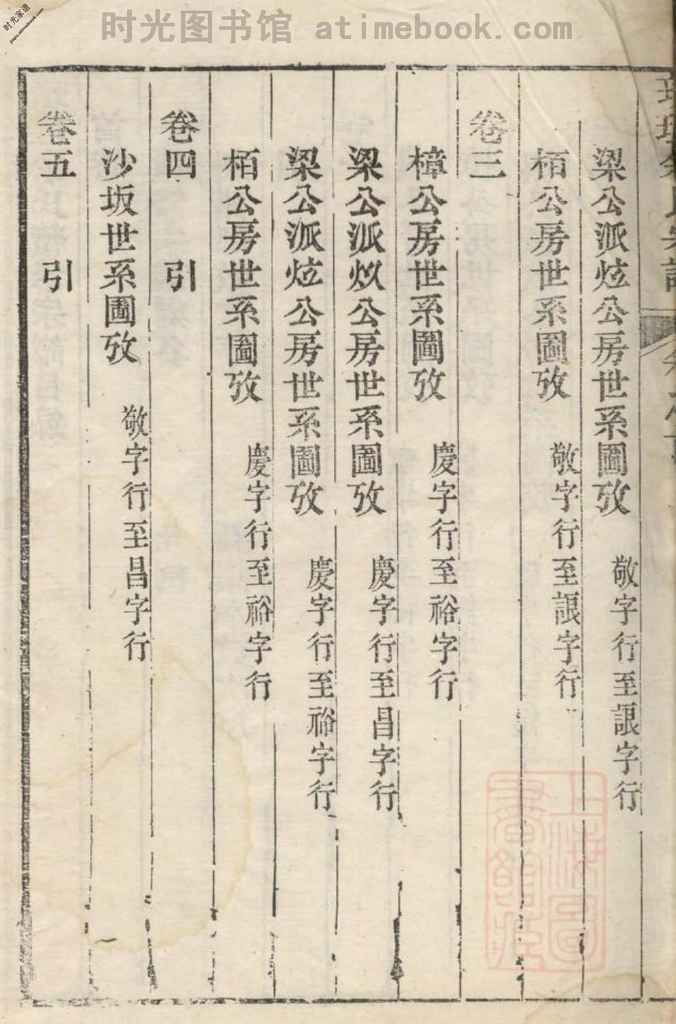 时光图书馆 atimebook.com
时光家谱
梁公派炫公房世系圖攷 敬字行至詪字行
栢公房世系圖攷 敬字行至詪字行
卷三
樟公房世系圖攷 慶字行至裕字行
梁公派炇公房世系圖攷 慶字行至昌字行
梁公派炫公房世系圖攷 慶字行至裕字行
栢公房世系圖攷 慶字行至裕字行
卷四 引
沙坂世系圖攷 敬字行至昌字行
卷五 引